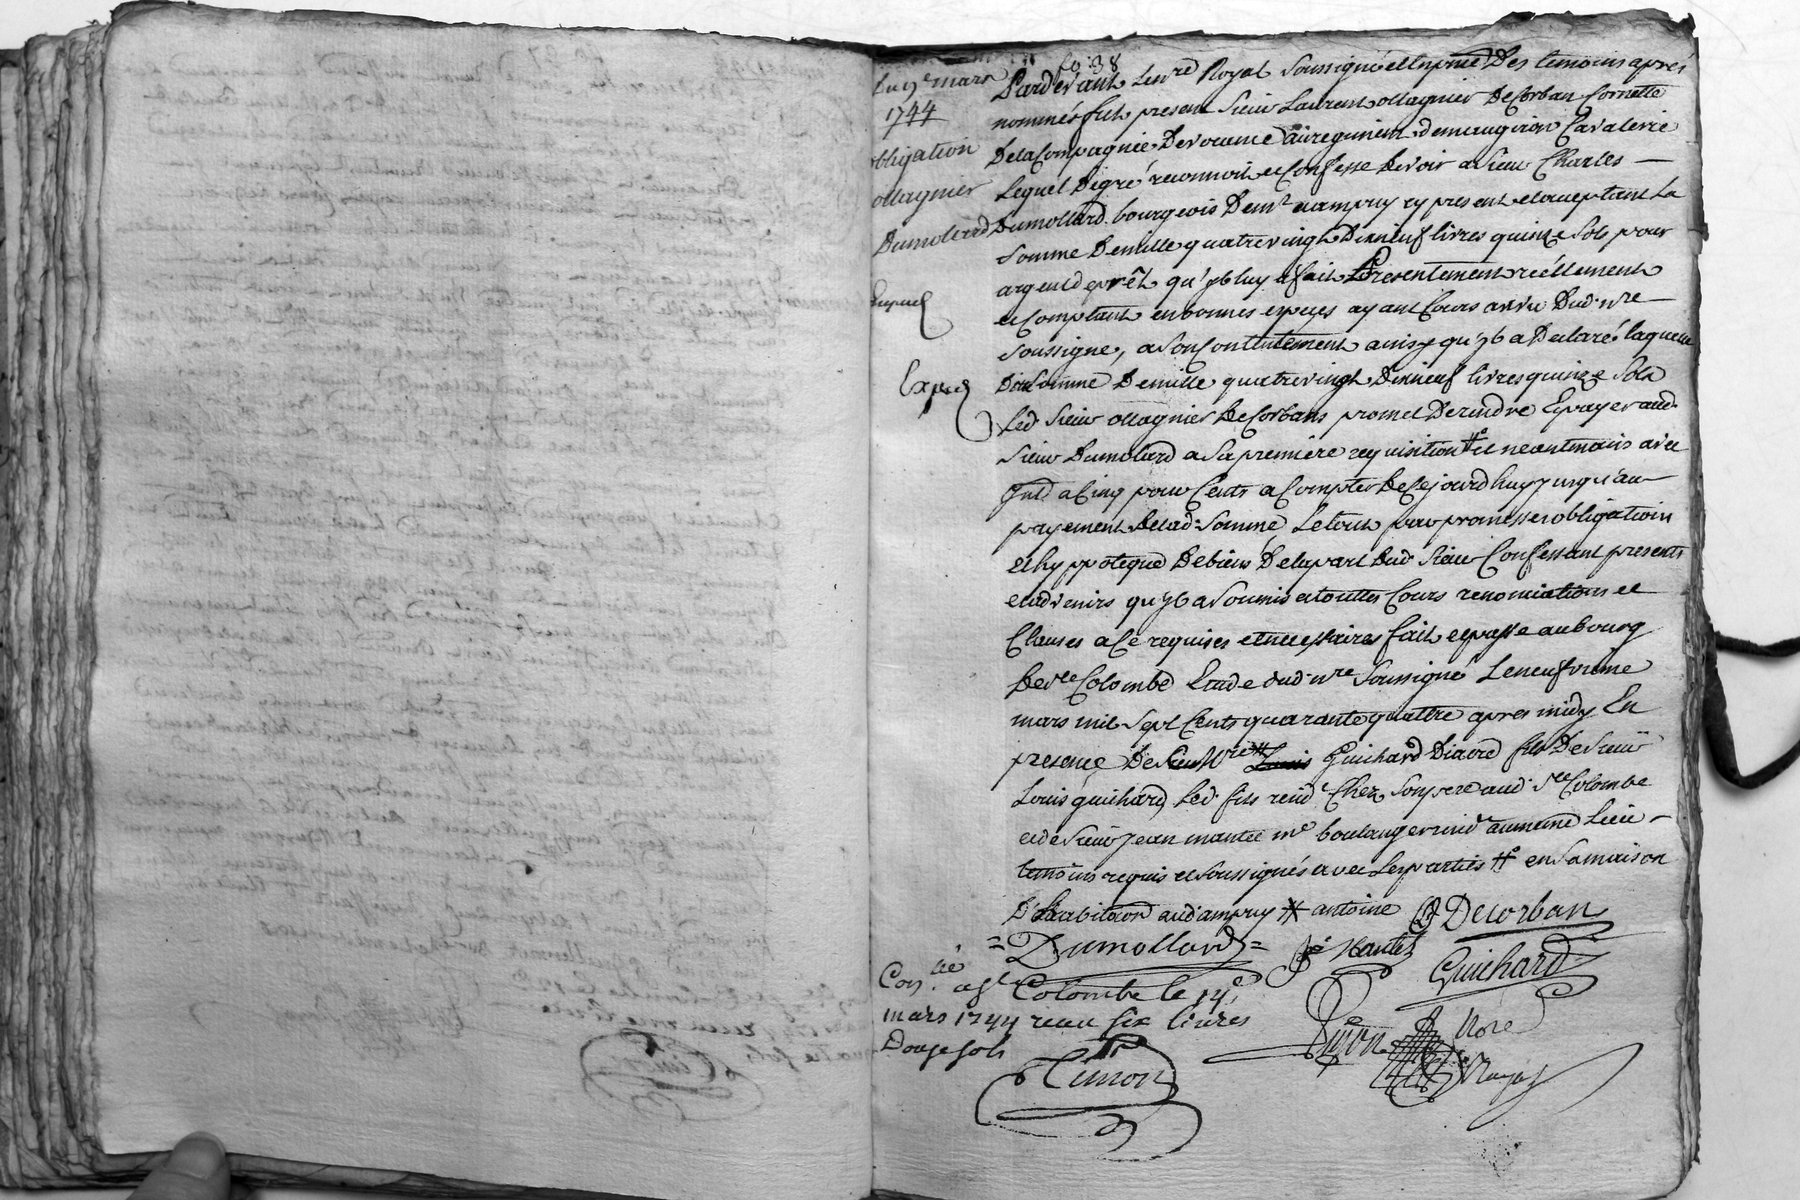 fo: 38
Du 9e mars
1744
obligation
ollagnier
Dumolard
Expedié
Expedié
Pardevant le nore Royal soussigné et en pnce Des temoins apres
nommés fut present sieur Laurent ollagnier Decorban Cornette
De la Compagnie au regiment de maugiron Cavalerie
Lequel De gré reconnoit et Confesse devoir a sieur Charles —
Dumollard bourgeois D'ampuy cy present et acceptant La
somme De mille quatrevingt Dixneuf livres quinze sols pour
argent de prêt qu'il luy a fait Presentement reéllement
et Comptant en bonnes especes ayant Cours au vu Dud. nre —
soussigné, a son Contentement ainsy qu'il a Declaré laquelle
ditte somme De mille quatrevingt Dixneuf livres quinze sols
Led. sieur ollagnier De Corban promet De rendre Et payer aud.
sieur Dumolard a sa premiere requisition # et neantmoins avec
a Cinq pour Cents a Compter De Ce jourd'huy jusqu'au —
payement De lad. somme Le tout par promesse obligation
et hyppoteque De biens De la part Dud. sieur Confessant presents
et advenirs qu'il a soumis a touttes Cours renonciations et
Clauses a Ce requises et necessaires fait et passé au bourg
De ste Colombe Etude dud. nre soussigné Le neufvieme
mars mil sept Cents quarante quattre apres midy En
presence De Guichard Diacre fils De sieur
Louis guichard, Led. fils resid.t Chez son pere aud. ste Colombe
et de sieur jean mantel me boulanger resid.t au meme Lieu —
temoins requis et soussignés avec Les parties # en sa maison
D'habitaon aud. ampuy # antoine Decorban
= Dumollard = Je Mantel
Guichard
Conlé a ste Colombe le 14e
mars 1744 recu six livres
Douze sols
Simon
Nore
Royal